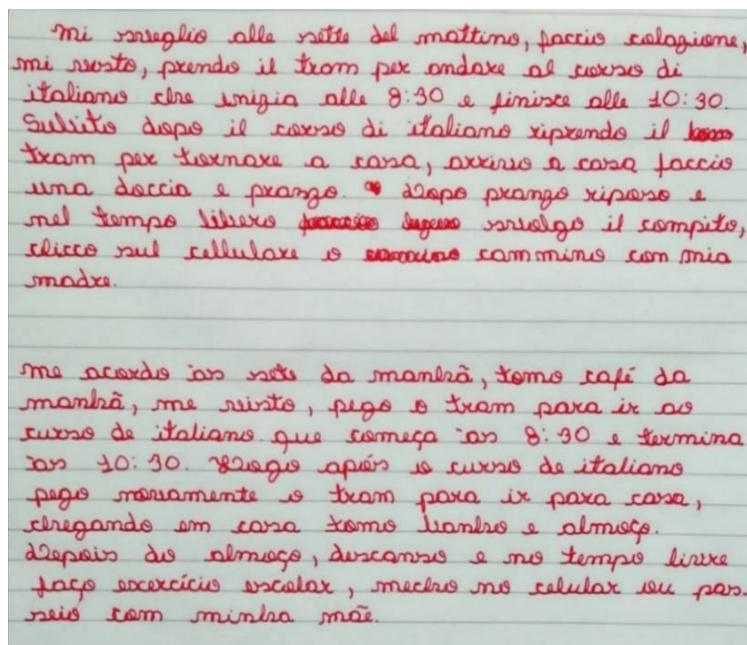 mi sveglio alle sette del mattino, faccio colazione,
mi vesto, prendo il tram per andare al corso di
italiano che inizia alle 8:30 e finisce alle 10:30.
Subito dopo il corso di italiano riprendo il
tram per tornare a casa, arrivo a casa faccio
una doccia e pranzo. Dopo pranzo riposo e
nel tempo libero svolgo il compito,
clicco sul cellulare o cammino con mia
madre.
me acordo às sete da manhã, tomo café da
manhã, me visto, pego o tram para ir ao
curso de italiano que começa às 8:30 e termina
às 10:30. Logo após o curso de italiano
pego novamente o tram para ir para casa,
chegando em casa tomo banho e almoço.
Depois do almoço, descanso e no tempo livre
faço exercício escolar, mecho no celular ou pas
seio com minha mãe.